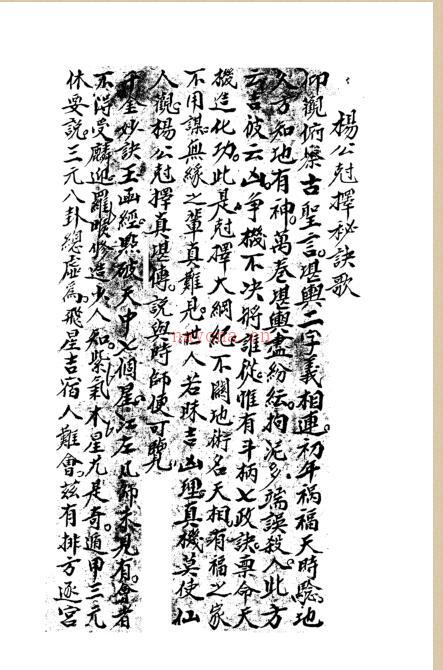 楊公尅擇秘訣歌
仰觀俯察古聖言堪輿二字義相連初年祸福天時驗地
久方知地有神萬卷堪輿盡紛紜拘泥多端誤殺人此方
云吉彼云凶争機不决將誰從惟有斗柄七政訣禀命天
機造化功此是尅擇大綱紀不關地術名天相有福之家
不用謀無緣之輩真難見世人若昧吉凶理真機莫使仙
人觀楊公尅擇真堪傳說與時師便可覽
千金妙訣玉函經點破天中七個星江左几師未見有會者
不得受麟逈羅㬋修造少人知紫氣木星尤是奇遁甲三元
休要說三元八卦總虚為飛星吉宿人難會茲有排方逐宮